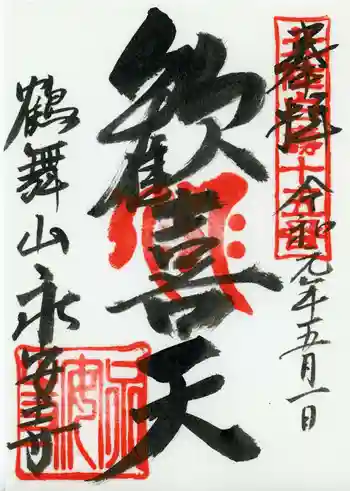 奉拝
令和元年五月一日
歓喜天
鶴舞山永安寺